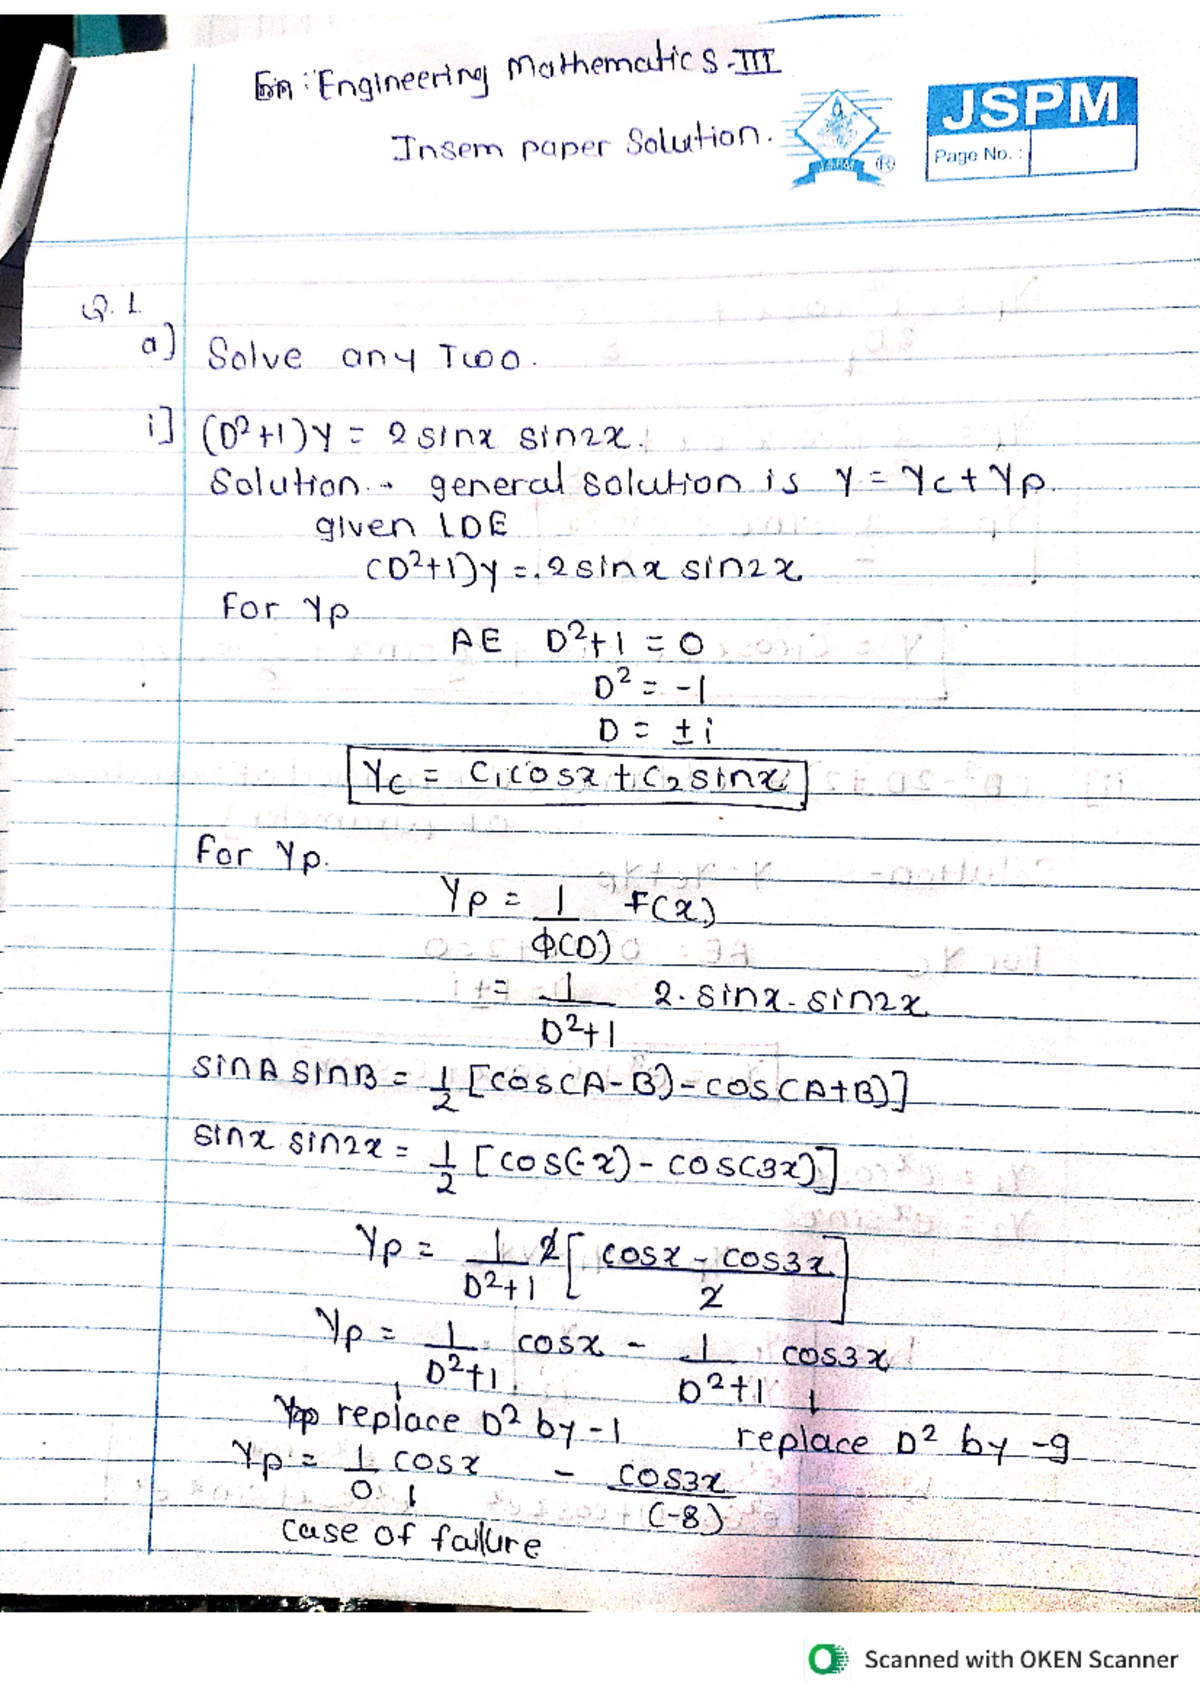 Em : Engineering Mathematics-III
Insem paper Solution.
JSPM
Page No. :
Q. 1
a] Solve any Two.
i] (D²+1)y = 2 sinx sin2x.
Solution.→ general solution is y = yc + yp.
given LDE
(D²+1)y = 2 sinx sin2x
For yp
AE D²+1 = 0
D² = -1
D = ± i
yc = c₁cosx + c₂ sinx
For yp.
yp = 1/Φ(D) F(x)
= 1/D²+1 2. sinx. sin2x
sinA sinB = 1/2 [cos(A-B) - cos(A+B)]
sinx sin2x = 1/2 [cos(-x) - cos(3x)]
yp = 1/D²+1 2[cosx - cos3x/2]
yp = 1/D²+1 cosx - 1/D²+1 cos3x
replace D² by -1 replace D² by -9
yp = 1/0 cosx - cos3x/(-8)
case of failure
Scanned with OKEN Scanner